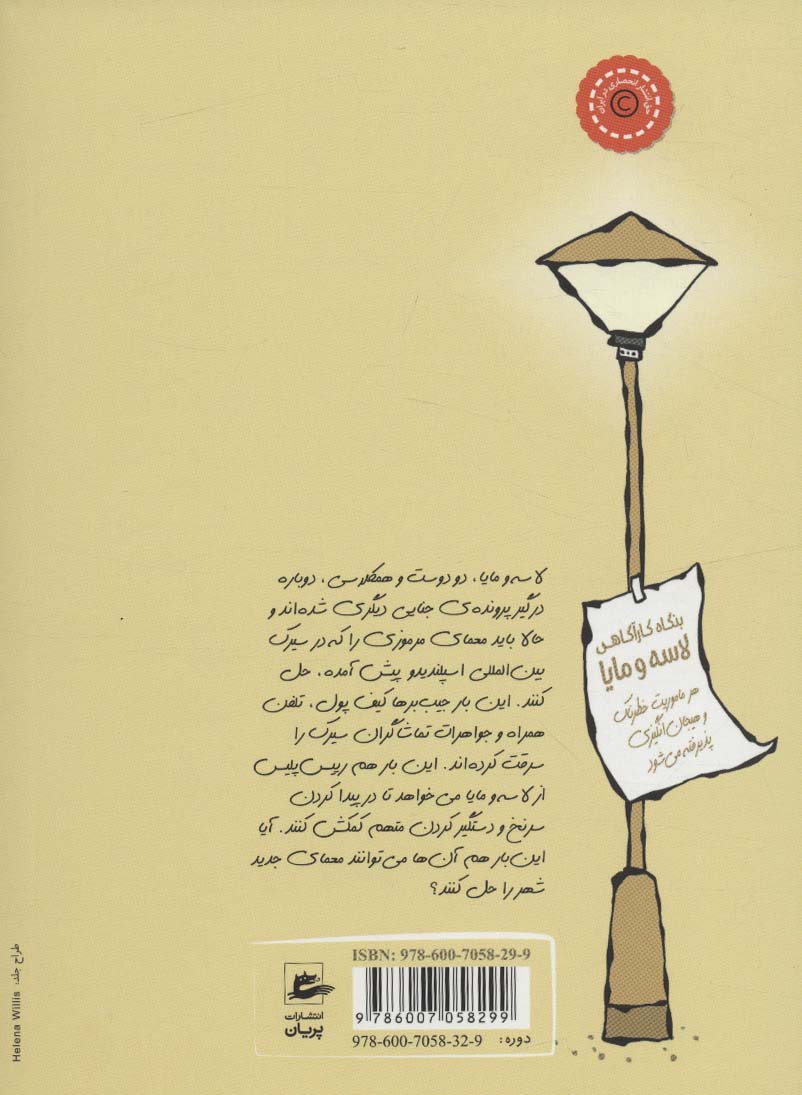 حق انتشار انحصاری در ایران
©
بنگاه کارآگاهی
لاسه و مایا
هر ماموریت خطرناک
و هیجان‌انگیزی
پذیرفته می‌شود
لاسه و مایا، دو دوست و همکلاسی، دوباره
درگیر پرونده‌ی جنایی دیگری شده‌اند و
حالا باید معمای مرموزی را که در سیرک
بین‌المللی اسپلندیدو پیش آمده، حل
کنند. این بار جیب‌برها کیف پول، تلفن
همراه و جواهرات تماشاگران سیرک را
سرقت کرده‌اند. این بار هم رییس پلیس
از لاسه و مایا می‌خواهد تا در پیدا کردن
سرنخ و دستگیر کردن متهم کمکش کنند. آیا
این‌بار هم آن‌ها می‌توانند معمای جدید
شهر را حل کنند؟
ISBN: 978-600-7058-29-9
9 786007 058299
دوره: 978-600-7058-32-9
انتشارات
پریان
طراح جلد: Helena Willis